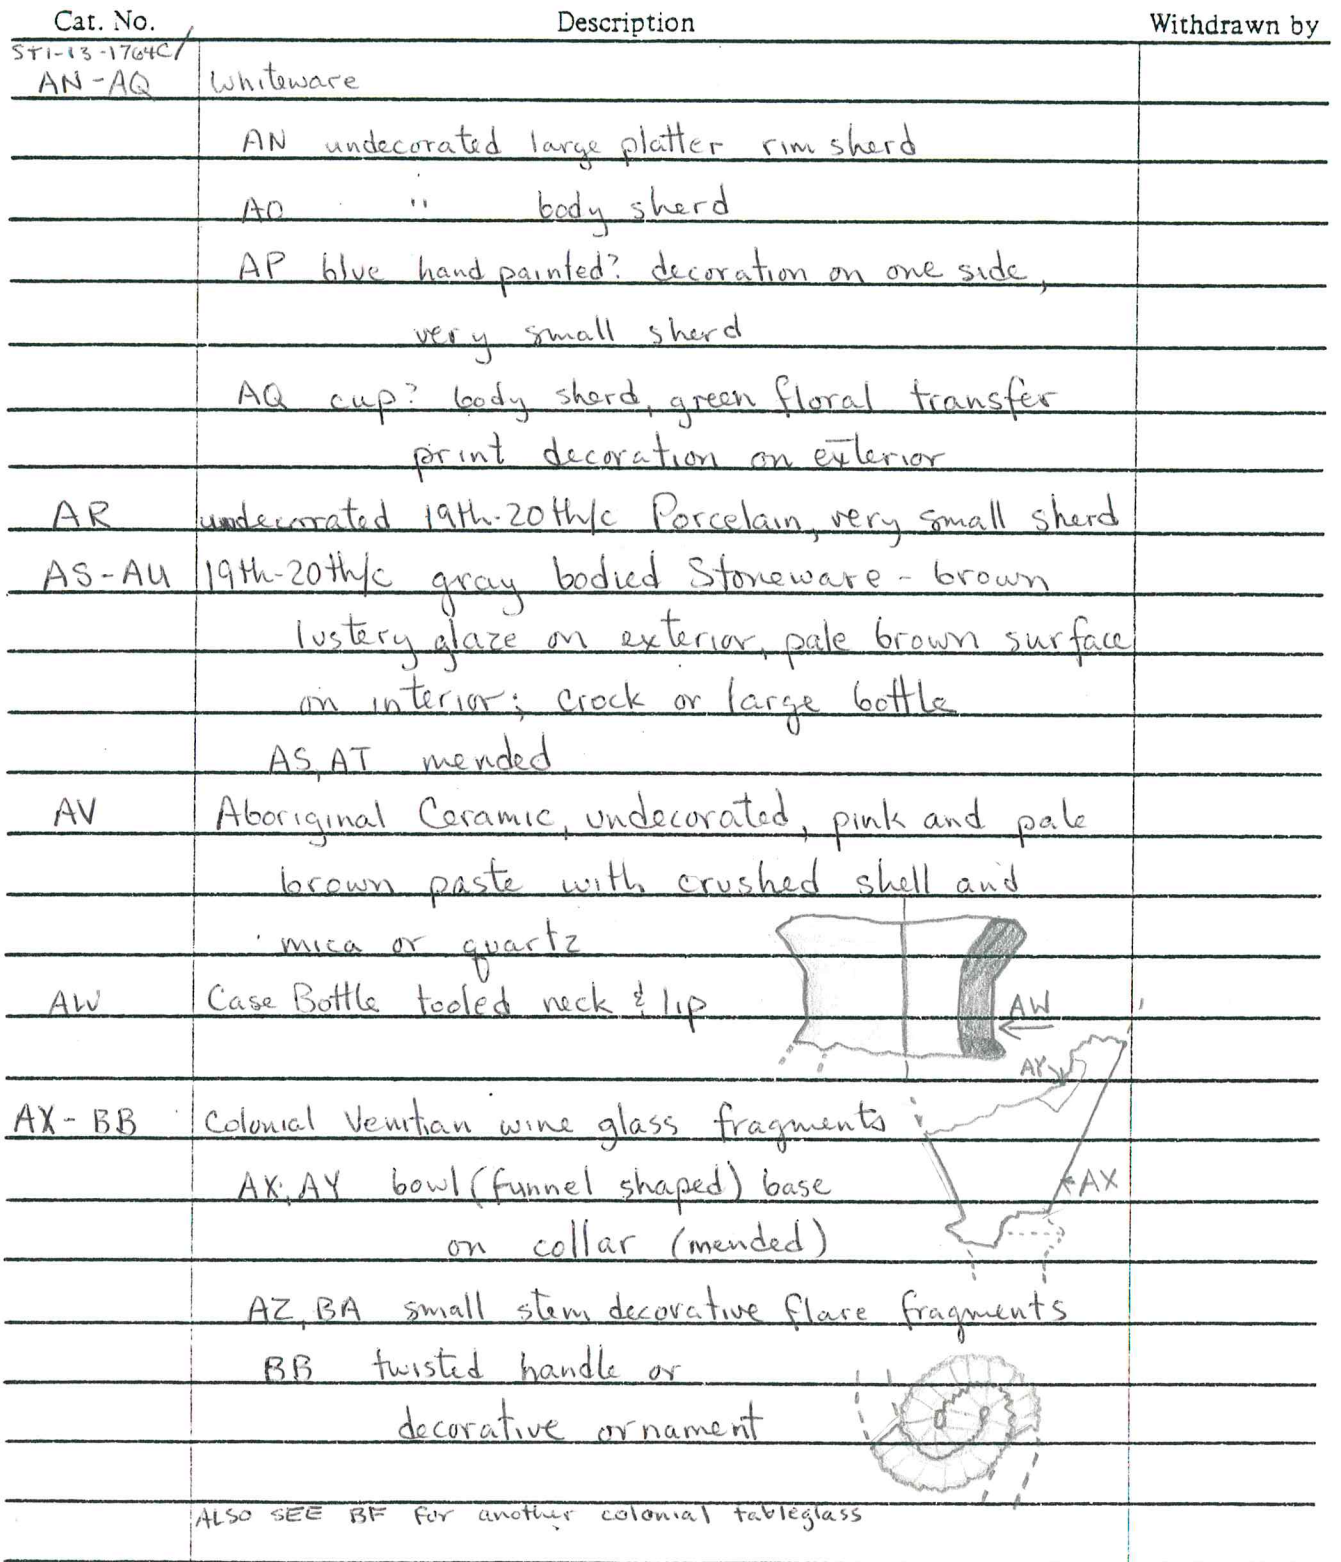 Cat. No. Description Withdrawn by
ST1-13-1764C/
AN-AQ Whiteware
AN undecorated large platter rim sherd
AO " body sherd
AP blue hand painted? decoration on one side,
very small sherd
AQ cup? body sherd, green floral transfer
print decoration on exterior
AR undecorrated 19th-20th/c Porcelain, very small sherd
AS-AU 19th-20th/c gray bodied Stoneware - brown
lustery glaze on exterior, pale brown surface
on interior; crock or large bottle
AS, AT mended
AV Aboriginal Ceramic, undecorated, pink and pale
brown paste with crushed shell and
mica or quartz
AW Case Bottle tooled neck & lip
AW
AY
AX-BB Colonial Venitian wine glass fragments
AX, AY bowl (funnel shaped) base
AX
on collar (mended)
AZ, BA small stem decorative flare fragments
BB twisted handle or
decorative ornament
ALSO SEE BF for another colonial tableglass